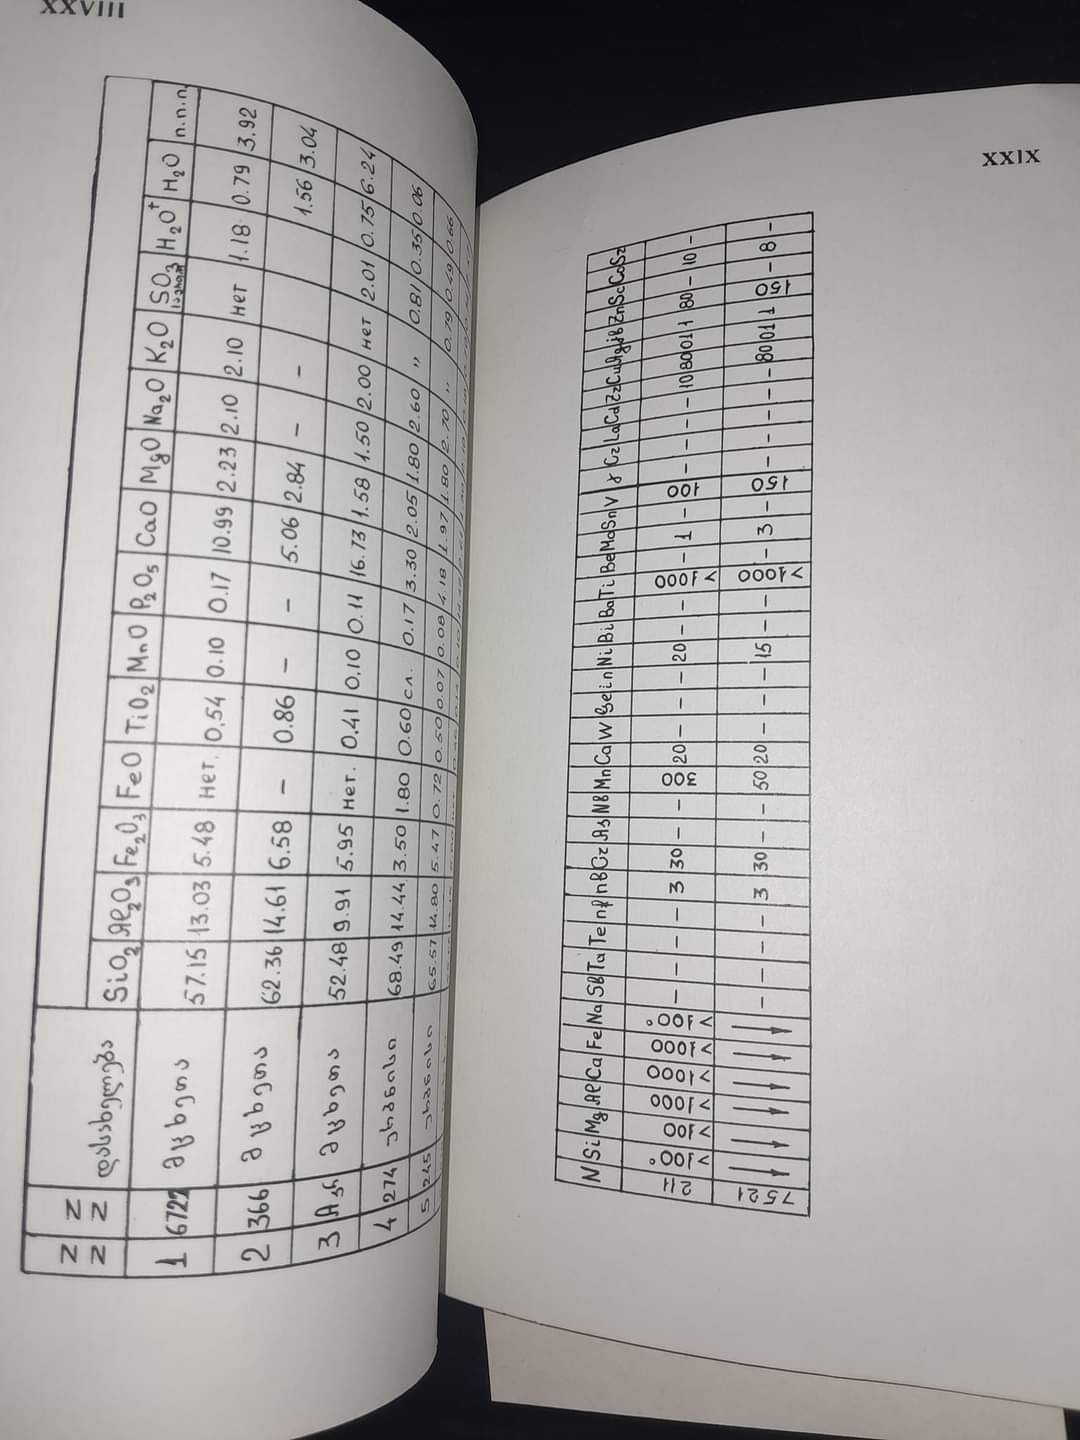 XXVIII
N N N N დასახელება SiO2 Al2O3 Fe2O3 FeO TiO2 MnO P2O5 CaO MgO Na2O K2O SO3 H2O+ H2O п.п.п
1 6722 მცხეთა 57.15 13.03 5.48 нет. 0.54 0.10 0.17 10.99 2.23 2.10 2.10 нет 1.18 0.79 3.92
2 366 მცხეთა 62.36 14.61 6.58 – 0.86 – – 5.06 2.84 – – 1.56 3.04
3 მცხეთა 52.48 9.91 5.95 нет. 0.41 0.10 0.11 16.73 1.58 1.50 2.00 нет 2.01 0.75 6.24
4 274 უბნისი 68.49 14.44 3.50 1.80 0.60 сл. 0.17 3.30 2.05 1.80 2.60 " 0.81 0.35 0.06
5 245 უბნისი 65.57 14.80 5.47 0.72 0.50 0.07 0.08 4.18 1.97 1.80 2.70 " 0.79 0.49 0.66
XXIX
N Si Mg Al Ca Fe Na Sb Ta Te Cr As Nb Mn Ca W Ni Bi Ba Ti Be Mo Sn V Y La Cd Zn Sc Co Sr
211 >100° >100 >1000 >1000 >1000 >100° – – – – 3 30 – – 300 20 – – – 20 – – >1000 – 1 – 100 – – – – 10 80 01 1 80 – 10 –
7521 – – – – 3 30 – – 50 20 – – – 15 – – >1000 – 3 – 150 – – – – – 80 01 1 150 – 8 –